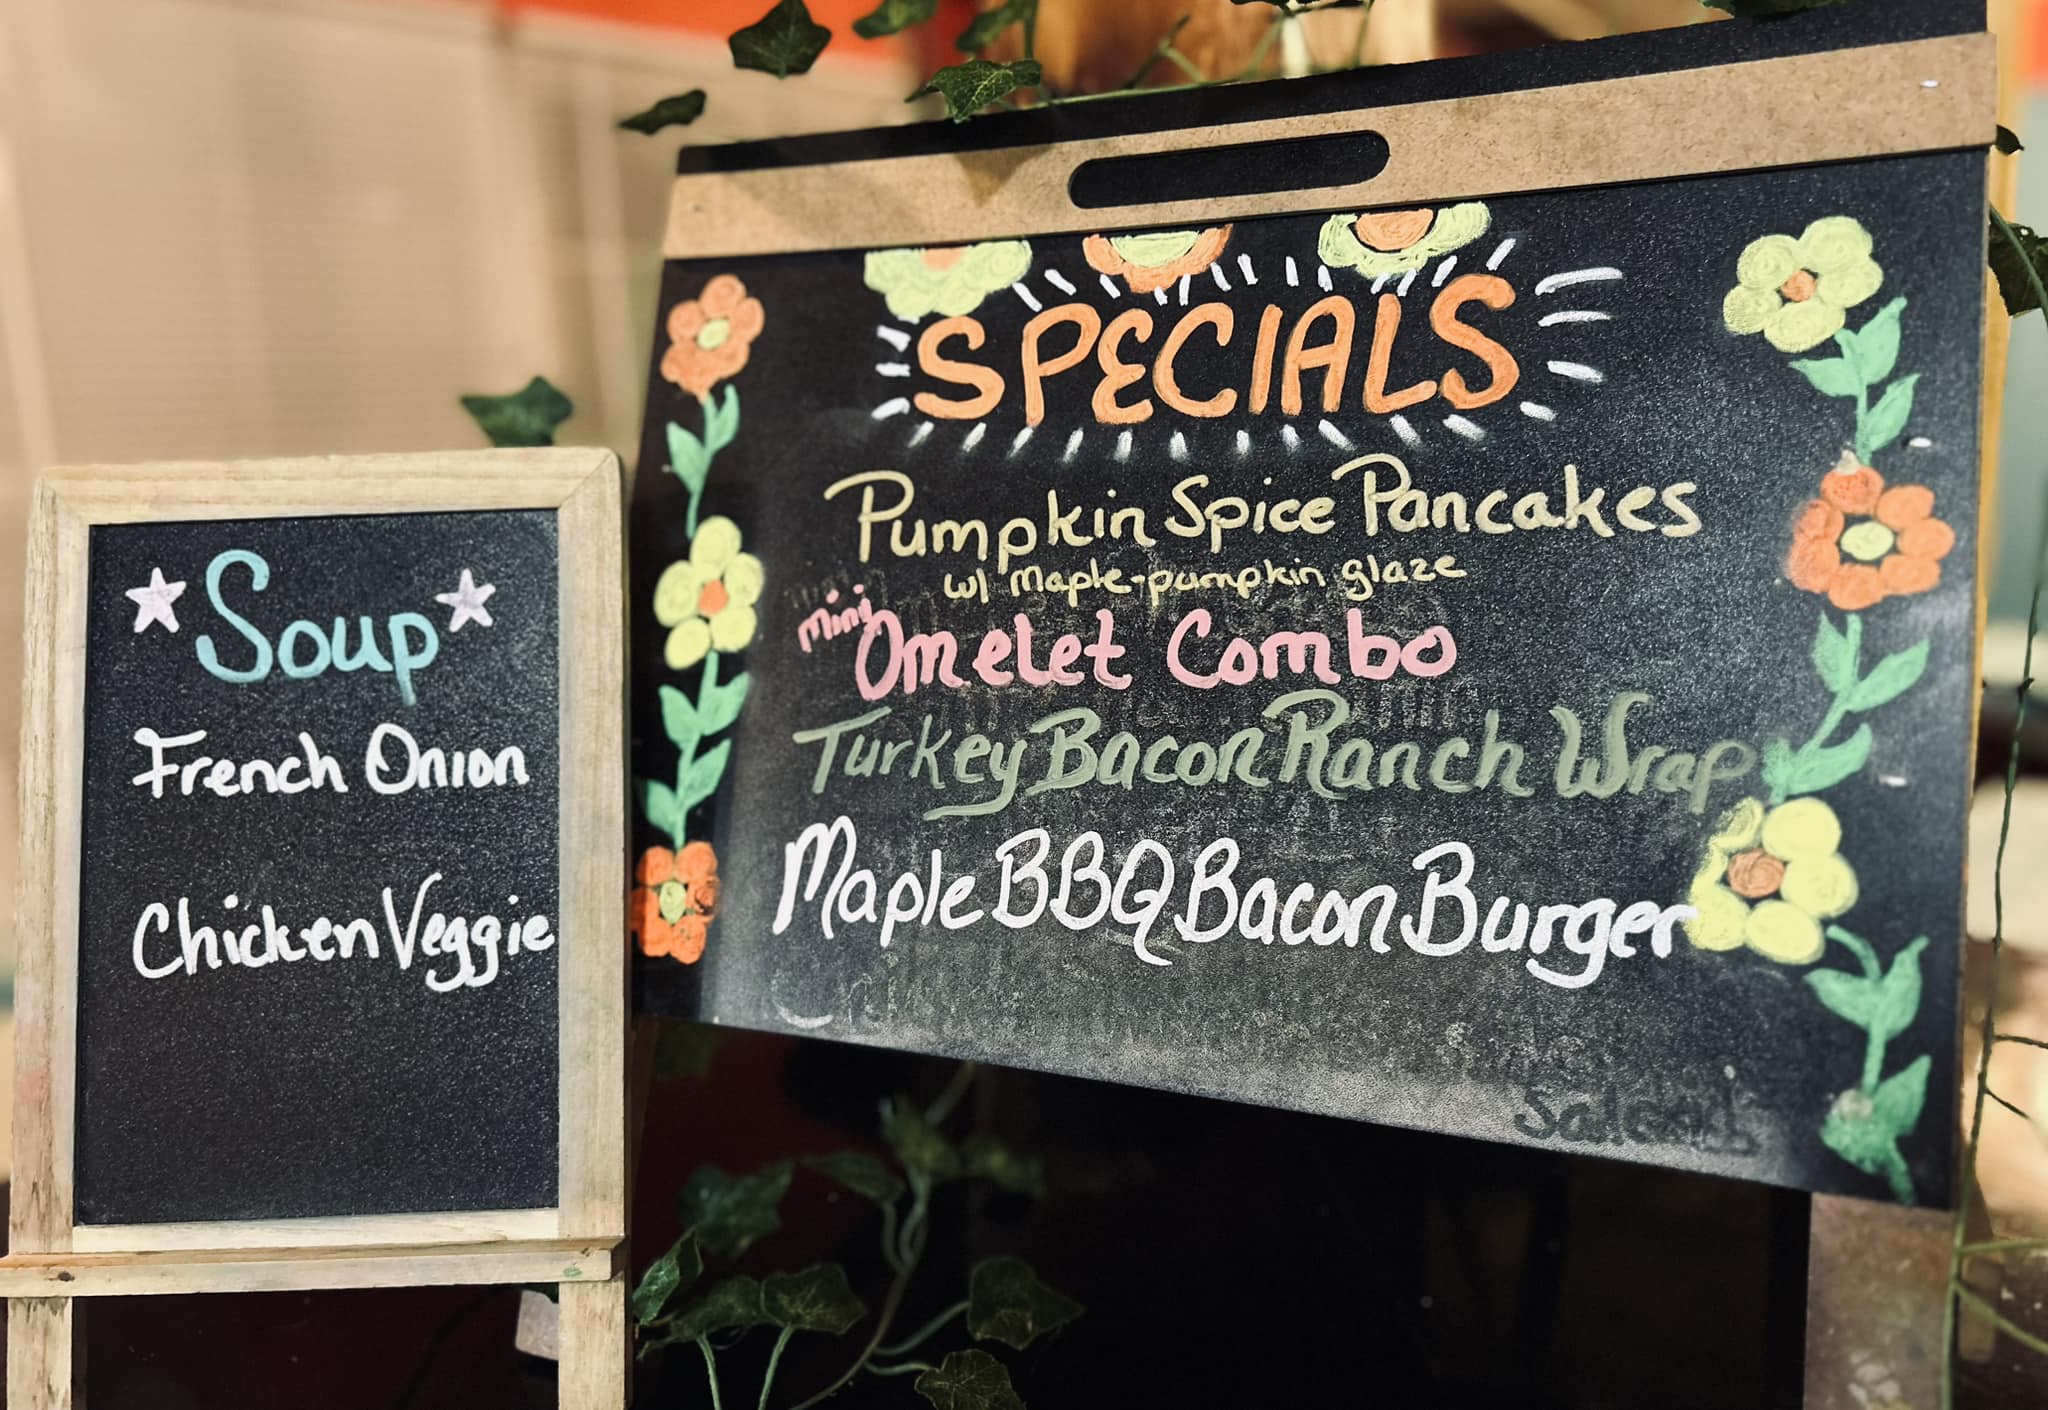 Soup
French Onion
Chicken Veggie
SPECIALS
Pumpkin Spice Pancakes
w/ Maple-pumpkin glaze
mini Omelet Combo
Turkey Bacon Ranch Wrap
Maple BBQ Bacon Burger